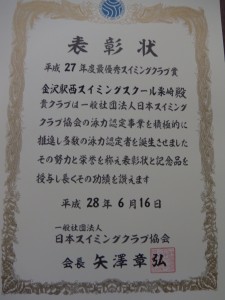 表彰状
平成27年度最優秀スイミングクラブ賞
金沢駅西スイミングスクール粟崎殿
貴クラブは一般社団法人日本スイミング
クラブ協会の泳力認定事業を積極的に
推進し多数の泳力認定者を誕生させました
その努力と栄誉を称え表彰状と記念品を
授与し長くその功績を讃えます
平成28年6月16日
一般社団法人
日本スイミングクラブ協会
会長 矢澤章弘